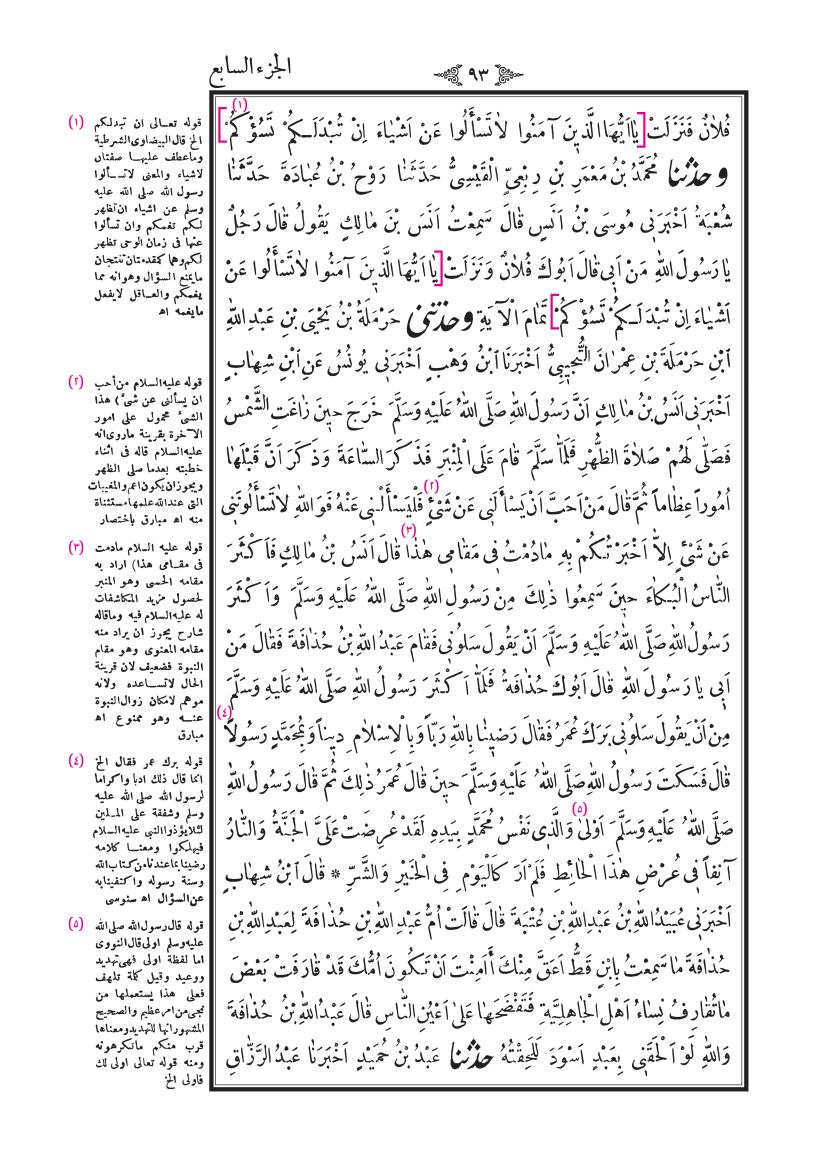 الجزء السابع
٩٣
فُلَانٌ فَنَزَلَتْ [يَا اَيُّهَا الَّذِينَ آمَنُوا لَا تَسْأَلُوا عَنْ اَشْيَاءَ اِنْ تُبْدَلَكُمْ تَسُؤْكُمْ] (١)
وحدثنا مُحَمَّدُ بْنُ مَعْمَرِ بْنِ رِبْعِيٍّ الْقَيْسِيُّ حَدَّثَنَا رَوْحُ بْنُ عُبَادَةَ حَدَّثَنَا
شُعْبَةُ اَخْبَرَنِي مُوسَى بْنُ اَنَسٍ قَالَ سَمِعْتُ اَنَسَ بْنَ مَالِكٍ يَقُولُ قَالَ رَجُلٌ
يَا رَسُولَ اللهِ مَنْ اَبِي قَالَ اَبُوكَ فُلَانٌ وَنَزَلَتْ [يَا اَيُّهَا الَّذِينَ آمَنُوا لَا تَسْأَلُوا عَنْ
اَشْيَاءَ اِنْ تُبْدَلَكُمْ تَسُؤْكُمْ] تَمَامَ الْآيَةِ وحدثني حَرْمَلَةُ بْنُ يَحْيَى بْنِ عَبْدِ اللهِ
ابْنِ حَرْمَلَةَ بْنِ عِمْرَانَ التُّجِيبِيُّ اَخْبَرَنَا ابْنُ وَهْبٍ اَخْبَرَنِي يُونُسُ عَنِ ابْنِ شِهَابٍ
اَخْبَرَنِي اَنَسُ بْنُ مَالِكٍ اَنَّ رَسُولَ اللهِ صَلَّى اللهُ عَلَيْهِ وَسَلَّمَ خَرَجَ حِينَ زَاغَتِ الشَّمْسُ
فَصَلَّى لَهُمْ صَلَاةَ الظُّهْرِ فَلَمَّا سَلَّمَ قَامَ عَلَى الْمِنْبَرِ فَذَكَرَ السَّاعَةَ وَذَكَرَ اَنَّ قَبْلَهَا
اُمُوراً عِظَاماً ثُمَّ قَالَ مَنْ اَحَبَّ اَنْ يَسْأَلَنِي عَنْ شَيْءٍ (٢) فَلْيَسْأَلْنِي عَنْهُ فَوَاللهِ لَا تَسْأَلُونَنِي
عَنْ شَيْءٍ اِلَّا اَخْبَرْتُكُمْ بِهِ مَا دُمْتُ فِي مَقَامِي هٰذَا (٣) قَالَ اَنَسُ بْنُ مَالِكٍ فَاَكْثَرَ
النَّاسُ الْبُكَاءَ حِينَ سَمِعُوا ذٰلِكَ مِنْ رَسُولِ اللهِ صَلَّى اللهُ عَلَيْهِ وَسَلَّمَ وَاَكْثَرَ
رَسُولُ اللهِ صَلَّى اللهُ عَلَيْهِ وَسَلَّمَ اَنْ يَقُولَ سَلُونِي فَقَامَ عَبْدُ اللهِ بْنُ حُذَافَةَ فَقَالَ مَنْ
اَبِي يَا رَسُولَ اللهِ قَالَ اَبُوكَ حُذَافَةُ فَلَمَّا اَكْثَرَ رَسُولُ اللهِ صَلَّى اللهُ عَلَيْهِ وَسَلَّمَ
مِنْ اَنْ يَقُولَ سَلُونِي بَرَكَ عُمَرُ فَقَالَ رَضِينَا بِاللهِ رَبّاً وَبِالْاِسْلَامِ دِيناً وَبِمُحَمَّدٍ رَسُولاً (٤)
قَالَ فَسَكَتَ رَسُولُ اللهِ صَلَّى اللهُ عَلَيْهِ وَسَلَّمَ حِينَ قَالَ عُمَرُ ذٰلِكَ ثُمَّ قَالَ رَسُولُ اللهِ
صَلَّى اللهُ عَلَيْهِ وَسَلَّمَ اَوْلَى (٥) وَالَّذِي نَفْسُ مُحَمَّدٍ بِيَدِهِ لَقَدْ عُرِضَتْ عَلَيَّ الْجَنَّةُ وَالنَّارُ
آنِفاً فِي عُرْضِ هٰذَا الْحَائِطِ فَلَمْ اَرَ كَالْيَوْمِ فِي الْخَيْرِ وَالشَّرِّ * قَالَ ابْنُ شِهَابٍ
اَخْبَرَنِي عُبَيْدُ اللهِ بْنُ عَبْدِ اللهِ بْنِ عُتْبَةَ قَالَ قَالَتْ اُمُّ عَبْدِ اللهِ بْنِ حُذَافَةَ لِعَبْدِ اللهِ بْنِ
حُذَافَةَ مَا سَمِعْتُ بِابْنٍ قَطُّ اَعَقَّ مِنْكَ أَاَمِنْتَ اَنْ تَكُونَ اُمُّكَ قَدْ قَارَفَتْ بَعْضَ
مَا تُقَارِفُ نِسَاءُ اَهْلِ الْجَاهِلِيَّةِ فَتَفْضَحَهَا عَلَى اَعْيُنِ النَّاسِ قَالَ عَبْدُ اللهِ بْنُ حُذَافَةَ
وَاللهِ لَوْ اَلْحَقَنِي بِعَبْدٍ اَسْوَدَ لَلَحِقْتُهُ حدثنا عَبْدُ بْنُ حُمَيْدٍ اَخْبَرَنَا عَبْدُ الرَّزَّاقِ
(١) قوله تعالى ان تبدلكم
الخ قال البيضاوى الشرطية
وما عطف عليها صفتان
لاشياء والمعنى لا تسألوا
رسول الله صلى الله عليه
وسلم عن اشياء ان تظهر
لكم تغمكم وان تسألوا
عنها فى زمان الوحى تظهر
لكم وهما كمقدمتان تنتجان
ما يمنع السؤال وهو انه مما
يغمكم والعاقل لا يفعل
ما يغمه اه
(٢) قوله عليه السلام من احب
ان يسألنى عن شئ) هذا
الشئ محمول على امور
الآخرة بقرينة ما روى انه
عليه السلام قاله فى اثناء
خطبته بعدما صلى الظهر
ويجوز ان يكون اعم والمغيبات
التى عند الله علمها مستثناة
منه اه مبارق باختصار
(٣) قوله عليه السلام مادمت
فى مقامى هذا) اراد به
مقامه الحسى وهو المنبر
لحصول مزيد المكاشفات
له عليه السلام فيه وما قاله
شارح يجوز ان يراد منه
مقامه المعنوى وهو مقام
النبوة فضعيف لان قرينة
الحال لا تساعده ولانه
موهم لامكان زوال النبوة
عنه وهو ممنوع اه
مبارق
(٤) قوله برك عمر فقال الخ
انما قال ذلك ادبا واكراما
لرسول الله صلى الله عليه
وسلم وشفقة على المسلمين
لئلا يؤذوا النبى عليه السلام
فيهلكوا ومعنا كلامه
رضينا بما عندنا من كتاب الله
وسنة رسوله واكتفينا به
عن السؤال اه سنوسى
(٥) قوله قال رسول الله صلى الله
عليه وسلم اولى قال النووى
اما لفظة اولى فهى تهديد
ووعيد وقيل كلمة تلهف
فعلى هذا يستعملها من
نجى من امر عظيم والصحيح
المشهور انها للتهديد ومعناها
قرب منكم ما تكرهونه
ومنه قوله تعالى اولى لك
فاولى الخ